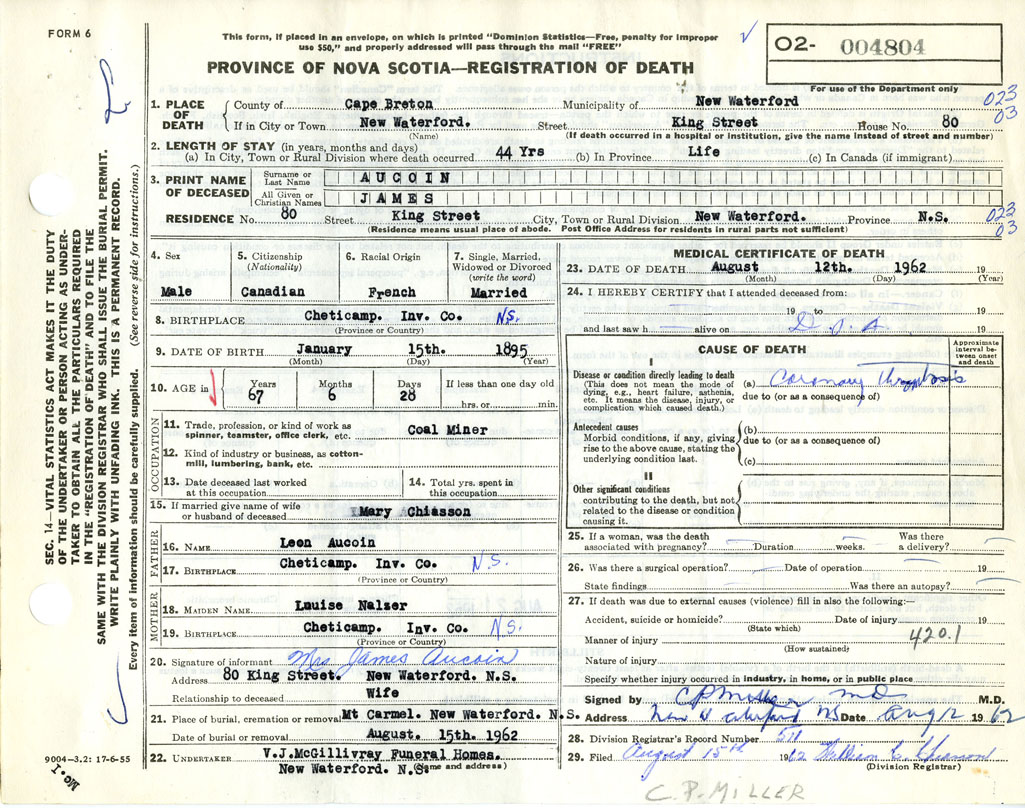 FORM 6
This form, if placed in an envelope, on which is printed "Dominion Statistics—Free, penalty for improper
use $50," and properly addressed will pass through the mail "FREE"
O2- 004804
PROVINCE OF NOVA SCOTIA—REGISTRATION OF DEATH
For use of the Department only
1. PLACE OF DEATH County of Cape Breton Municipality of New Waterford 023
If in City or Town New Waterford. Street King Street House No. 80 03
(Name) (If death occurred in a hospital or institution, give the name instead of street and number)
2. LENGTH OF STAY (in years, months and days)
(a) In City, Town or Rural Division where death occurred 44 Yrs (b) In Province Life (c) In Canada (if immigrant)
3. PRINT NAME OF DECEASED Surname or Last Name AUCOIN
All Given or Christian Names JAMES
RESIDENCE No. 80 Street King Street City, Town or Rural Division New Waterford. Province N.S. 023
(Residence means usual place of abode. Post Office Address for residents in rural parts not sufficient) 03
4. Sex 5. Citizenship (Nationality) 6. Racial Origin 7. Single, Married, Widowed or Divorced (write the word)
Male Canadian French Married
8. BIRTHPLACE Cheticamp. Inv. Co. N.S.
(Province or Country)
9. DATE OF BIRTH January 15th. 1895
(Month) (Day) (Year)
10. AGE in Years Months Days If less than one day old
67 6 28 hrs. or min.
OCCUPATION
11. Trade, profession, or kind of work as spinner, teamster, office clerk, etc. Coal Miner
12. Kind of industry or business, as cotton-mill, lumbering, bank, etc.
13. Date deceased last worked at this occupation
14. Total yrs. spent in this occupation
15. If married give name of wife or husband of deceased Mary Chiasson
FATHER
16. NAME Leon Aucoin
17. BIRTHPLACE Cheticamp. Inv. Co. N.S.
(Province or Country)
MOTHER
18. MAIDEN NAME Louise Nalzer
19. BIRTHPLACE Cheticamp. Inv. Co. N.S.
(Province or Country)
20. Signature of informant Mrs James Aucoin
Address 80 King Street. New Waterford. N.S.
Relationship to deceased Wife
21. Place of burial, cremation or removal Mt Carmel. New Waterford. N.S.
Date of burial or removal August. 15th. 1962
22. UNDERTAKER V.J.McGillivray Funeral Homes.
New Waterford. N.S. (Name and address)
9004—3.2: 17-6-55
MEDICAL CERTIFICATE OF DEATH
23. DATE OF DEATH August 12th. 1962 19
(Month) (Day) (Year)
24. I HEREBY CERTIFY that I attended deceased from:
19 to 19
and last saw h alive on D.O.A 19
CAUSE OF DEATH
Approximate interval between onset and death
I
Disease or condition directly leading to death
(This does not mean the mode of dying, e.g., heart failure, asthenia, etc. It means the disease, injury, or complication which caused death.)
(a) Coronary Thrombosis
due to (or as a consequence of)
Antecedent causes
Morbid conditions, if any, giving rise to the above cause, stating the underlying condition last.
(b)
due to (or as a consequence of)
(c)
II
Other significant conditions
contributing to the death, but not related to the disease or condition causing it.
25. If a woman, was the death associated with pregnancy? Duration weeks. Was there a delivery?
26. Was there a surgical operation? Date of operation 19
State findings Was there an autopsy?
27. If death was due to external causes (violence) fill in also the following:—
Accident, suicide or homicide? Date of injury 19
(State which)
Manner of injury 420.1
(How sustained)
Nature of injury
Specify whether injury occurred in industry, in home, or in public place
Signed by C P Miller MD M.D.
Address New Waterford NS Date Aug 12 1962
28. Division Registrar's Record Number 511
29. Filed August 15th 1962
(Division Registrar)
C. P. MILLER
SEC. 14—VITAL STATISTICS ACT MAKES IT THE DUTY
OF THE UNDERTAKER OR PERSON ACTING AS UNDER-
TAKER TO OBTAIN ALL THE PARTICULARS REQUIRED
IN THE "REGISTRATION OF DEATH" AND TO FILE THE
SAME WITH THE DIVISION REGISTRAR WHO SHALL ISSUE THE BURIAL PERMIT.
WRITE PLAINLY WITH UNFADING INK. THIS IS A PERMANENT RECORD.
Every item of information should be carefully supplied. (See reverse side for instructions.)